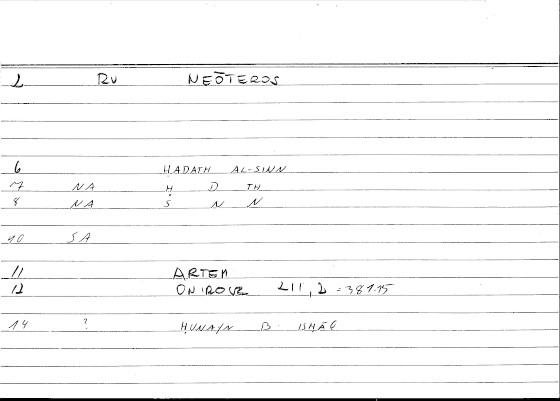 1 RV NEŌTEROS
6 ḤADATH AL-SINN
7 NA Ḥ D TH
8 NA S N N
10 SA
11 ARTEM
12 ONIROCR 211, 2 = 387.15
14 ? ḤUNAYN B. ISḤĀQ